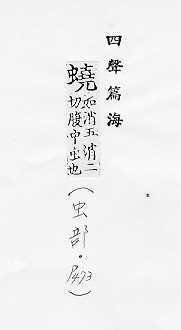 四聲篇海
蟯如消五消二
切腹中虫也
(虫部。P493)